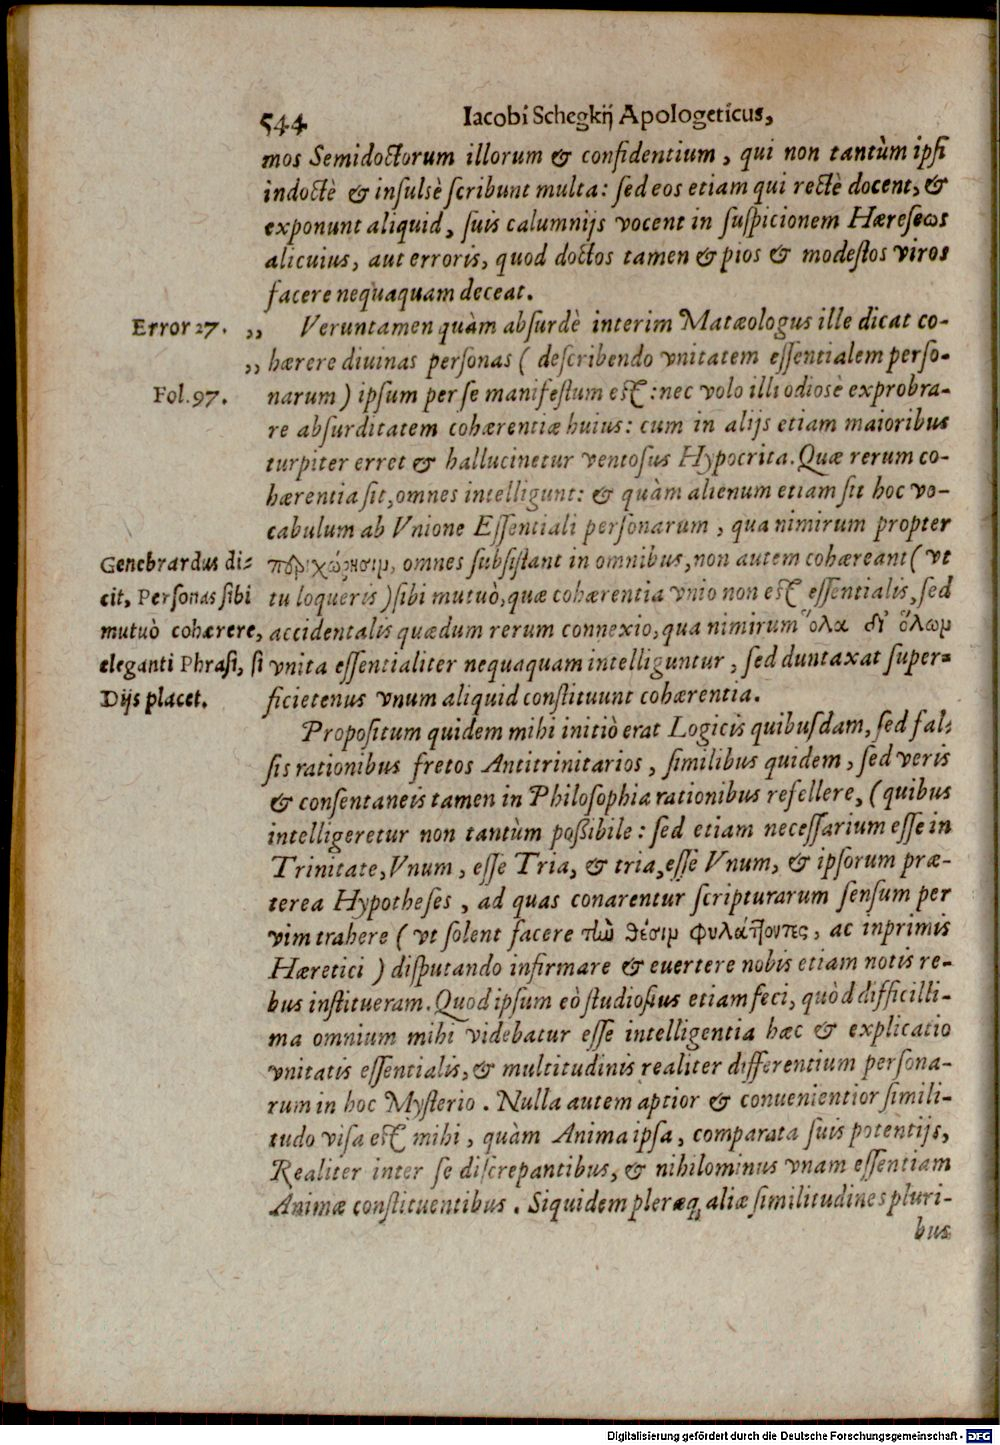 544
Iacobi Schegkij Apologeticus,
mos Semidoctorum illorum & confidentium, qui non tantùm ipsi
indoctè & insulsè scribunt multa: sed eos etiam qui rectè docent, &
exponunt aliquid, suis calumnijs vocent in suspicionem Hæreseωs
alicuius, aut erroris, quod doctos tamen & pios & modestos viros
facere nequaquam deceat.
Error 27. ,, Veruntamen quàm absurdè interim Matæologus ille dicat co-
,, hærere diuinas personas ( describendo vnitatem essentialem perso-
Fol. 97. narum ) ipsum per se manifestum est : nec volo illi odiosè exprobra-
re absurditatem cohærentiæ huius: cum in alijs etiam maioribus
turpiter erret & hallucinetur ventosus Hypocrita. Quæ rerum co-
hærentia sit, omnes intelligunt: & quàm alienum etiam sit hoc vo-
cabulum ab Vnione Essentiali personarum, qua nimirum propter
περιχώρησιμ, omnes subsistant in omnibus, non autem cohæreant ( vt
tu loqueris ) sibi mutuò, quæ cohærentia vnio non est essentialis, sed
accidentalis quædum rerum connexio, qua nimirum ὅλα δι' ὅλωμ
vnita essentialiter nequaquam intelliguntur, sed duntaxat super-
ficietenus vnum aliquid constituunt cohærentia.
Genebrardus di-
cit, Personas sibi
mutuò cohærere,
eleganti Phrasi, si
Dijs placet.
Propositum quidem mihi initiò erat Logicis quibusdam, sed fal-
sis rationibus fretos Antitrinitarios, similibus quidem, sed veris
& consentaneis tamen in Philosophia rationibus refellere, (quibus
intelligeretur non tantùm poßibile: sed etiam necessarium esse in
Trinitate, Vnum, esse Tria, & tria, esse Vnum, & ipsorum præ-
terea Hypotheses, ad quas conarentur scripturarum sensum per
vim trahere ( vt solent facere τὼ θέσιμ φυλάττοντες, ac inprimis
Hæretici ) disputando infirmare & euertere nobis etiam notis re-
bus institueram. Quod ipsum eò studiosius etiam feci, quòd difficilli-
ma omnium mihi videbatur esse intelligentia hæc & explicatio
vnitatis essentialis, & multitudinis realiter differentium persona-
rum in hoc Mysterio. Nulla autem aptior & conuenientior simili-
tudo visa est mihi, quàm Anima ipsa, comparata suis potentijs,
Realiter inter se discrepantibus, & nihilominus vnam essentiam
Animæ constituentibus. Siquidem pleræq; aliæ similitudines pluri-
bus
Digitalisierung gefördert durch die Deutsche Forschungsgemeinschaft - DFG